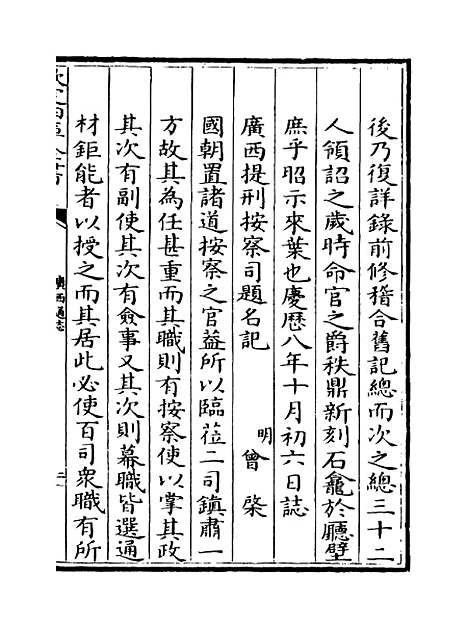 後乃復詳錄前修稽合舊記總而次之總三十二
人領詔之歲時命官之爵秩鼎新刻石龕於廳壁
庶乎昭示來葉也慶歷八年十月初六日誌
廣西提刑按察司題名記
明 曾棨
國朝置諸道按察之官葢所以臨莅二司鎮肅一
方故其為任甚重而其職則有按察使以掌其政
其次有副使其次有僉事又其次則幕職皆選通
材鉅能者以授之而其居此必使百司衆職有所
廣西通志